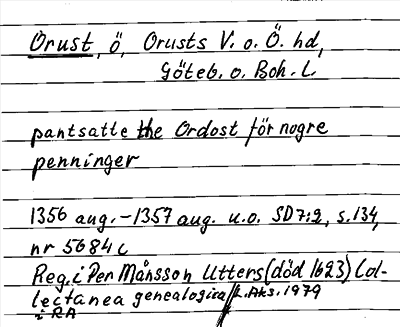 Orust, ö, Orusts V. o. Ö. hd,
Göteb. o. Boh. L
pantsatte the Ordost för nogre
penninger
1356 aug. - 1357 aug. u.o. SD7:2, s.134,
nr 5684 c
Reg. i Per Månsson Utters (död 1623) Col-
lectanea genealogica // L.Aks. 1979
i RA